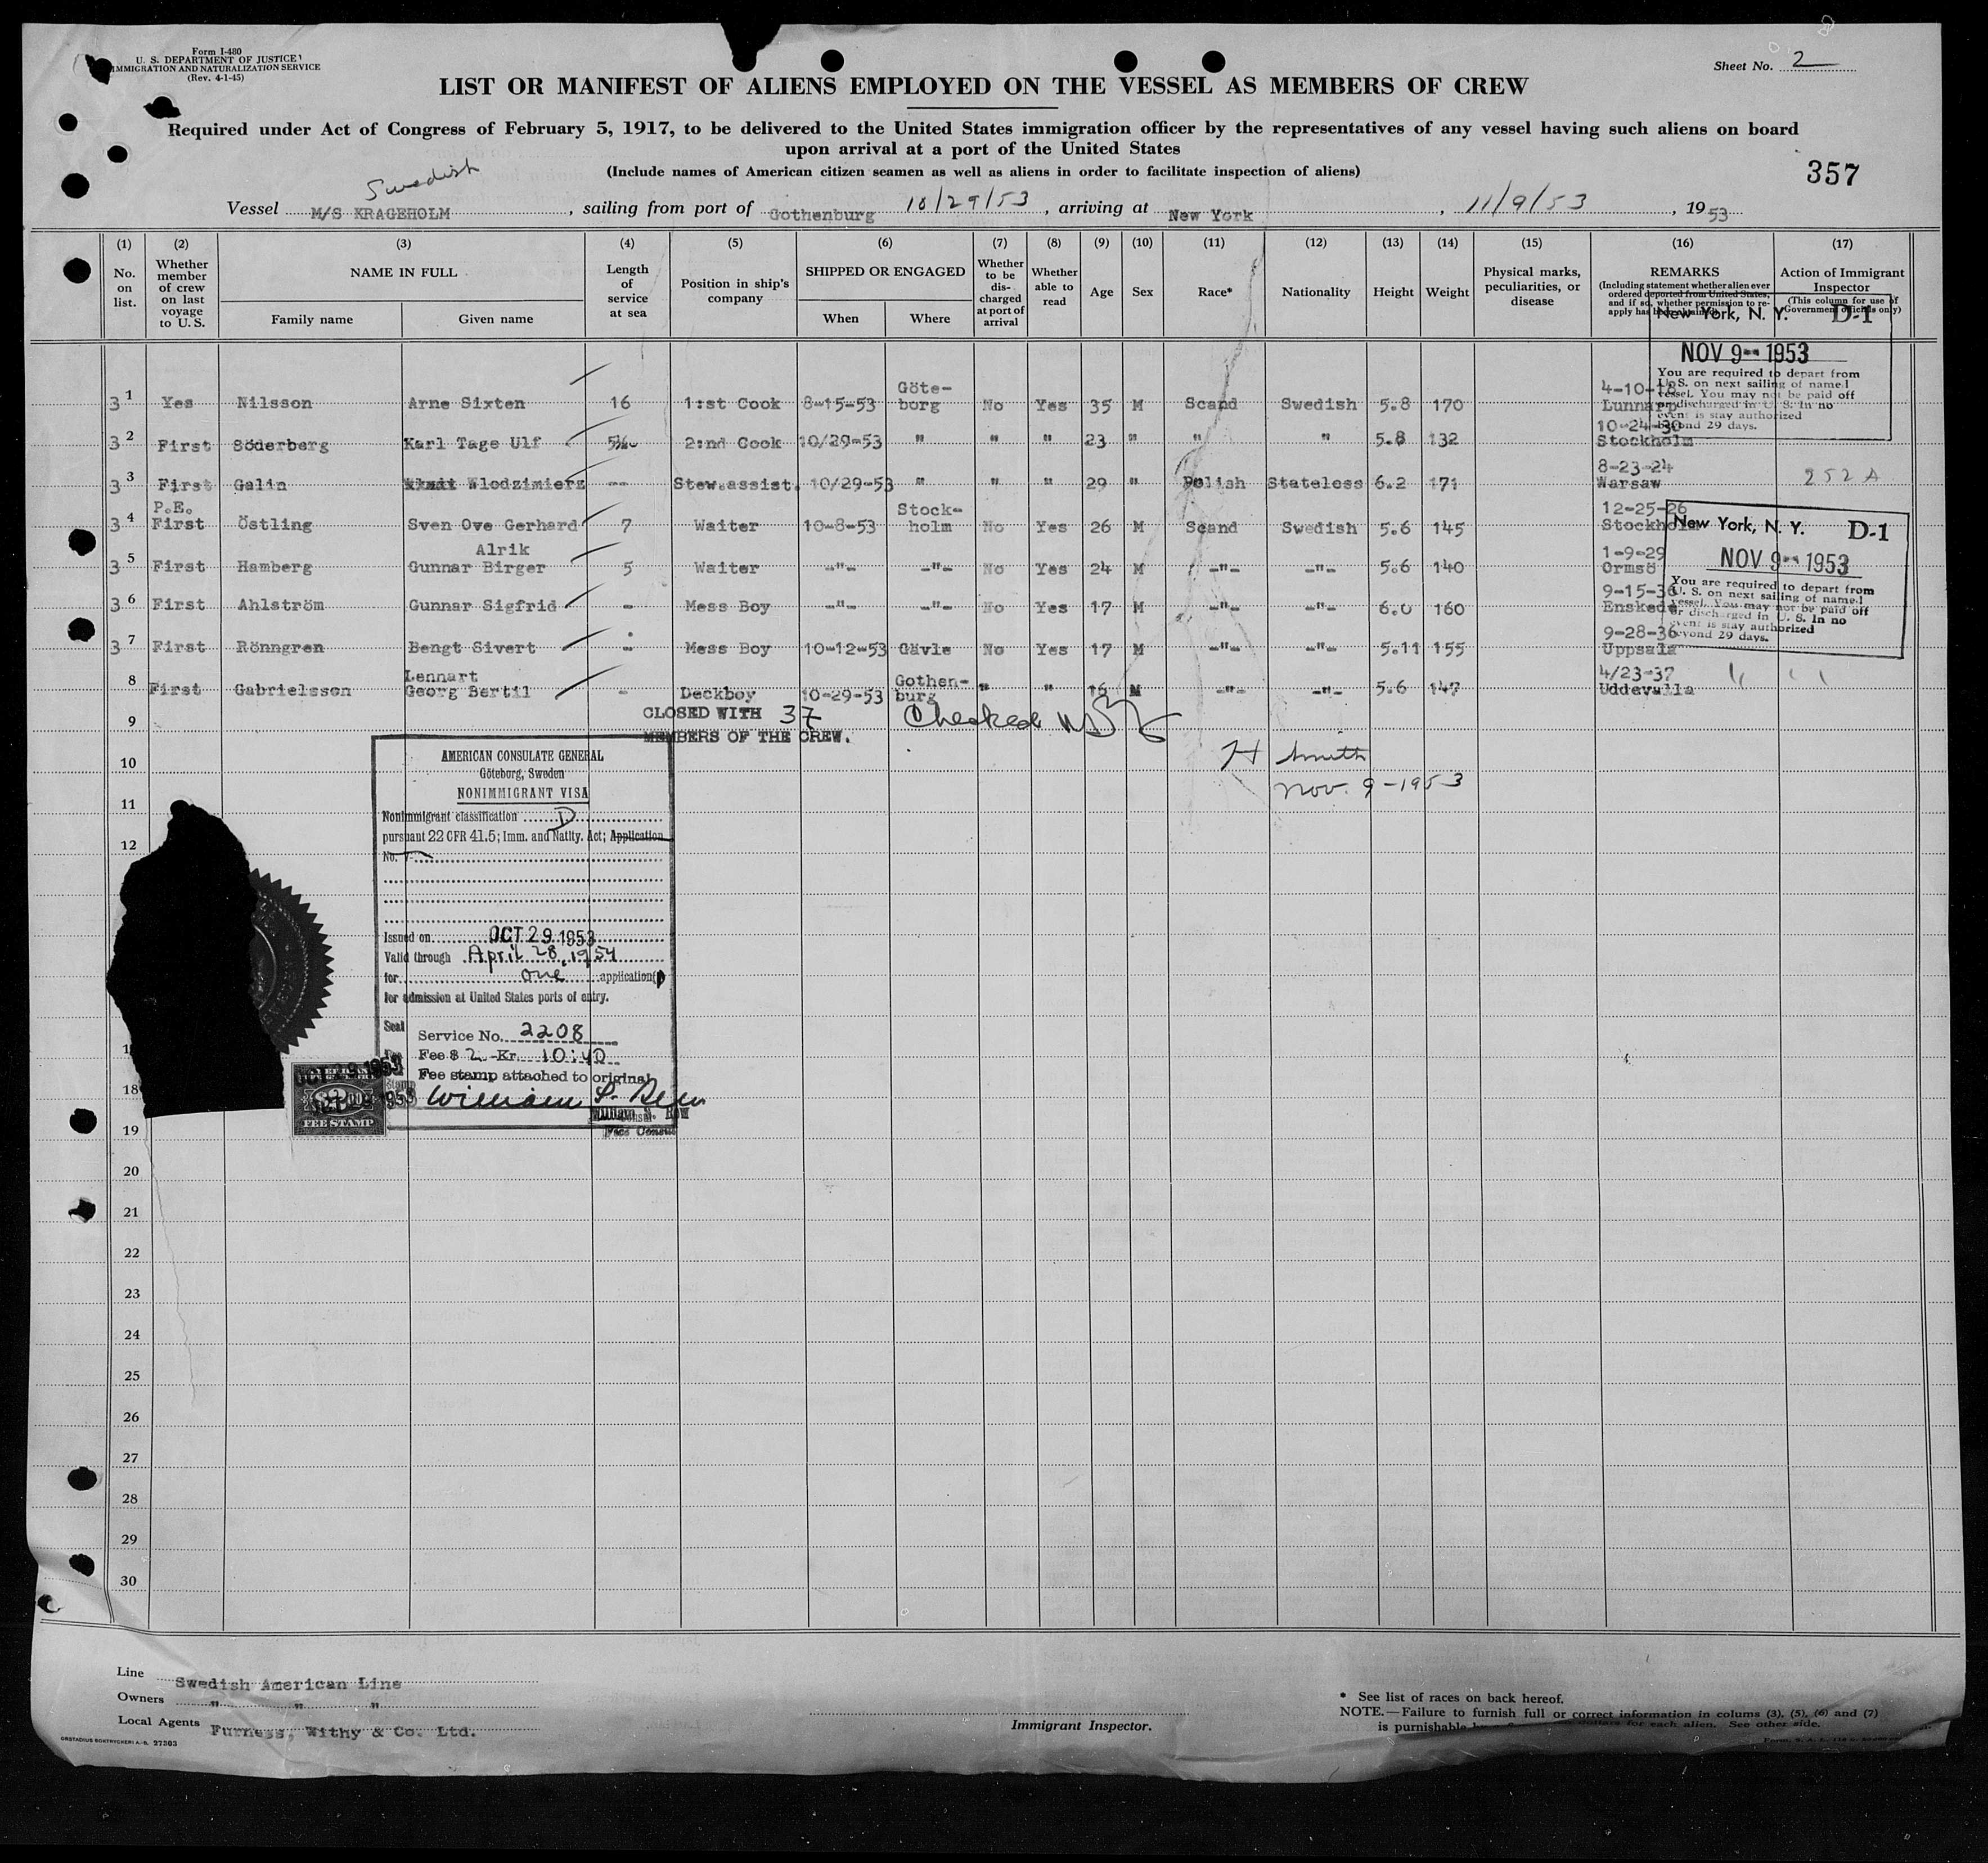 Form I-480
U. S. DEPARTMENT OF JUSTICE
IMMIGRATION AND NATURALIZATION SERVICE
(Rev. 4-1-45)
Sheet No. 2
LIST OR MANIFEST OF ALIENS EMPLOYED ON THE VESSEL AS MEMBERS OF CREW
Required under Act of Congress of February 5, 1917, to be delivered to the United States immigration officer by the representatives of any vessel having such aliens on board
upon arrival at a port of the United States
(Include names of American citizen seamen as well as aliens in order to facilitate inspection of aliens)
357
Swedish
Vessel M/S KRAGEHOLM, sailing from port of Gothenburg 10/29/53, arriving at New York, 11/9/53, 1953
(1) (2) (3) (4) (5) (6) (7) (8) (9) (10) (11) (12) (13) (14) (15) (16) (17)
No. on list. Whether member of crew on last voyage to U. S. NAME IN FULL Family name Given name Length of service at sea Position in ship's company SHIPPED OR ENGAGED When Where Whether to be discharged at port of arrival Whether able to read Age Sex Race* Nationality Height Weight Physical marks, peculiarities, or disease REMARKS (Including statement whether alien ever ordered deported from United States, and if so, whether permission to reapply has been obtained) Action of Immigrant Inspector (This column for use of Government officials only)
New York, N. Y. D-1
NOV 9 1953
You are required to depart from
U. S. on next sailing of named
vessel. You may not be paid off
or discharged in U. S. In no
event is stay authorized
beyond 29 days.
31 Yes Nilsson Arne Sixten 16 1:st Cook 8-15-53 Göteborg No Yes 35 M Scand Swedish 5.8 170 4-10-18 Lunnarp
32 First Söderberg Karl Tage Ulf 5½ 2:nd Cook 10/29-53 " " " 23 " " " 5.8 132 10-24-30 Stockholm
33 First Galin Wlodzimierz -- Stew.assist. 10/29-53 " " " 29 " Polish Stateless 6.2 171 8-23-24 Warsaw 252 A
34 P.E. First Östling Sven Ove Gerhard 7 Waiter 10-8-53 Stockholm No Yes 26 M Scand Swedish 5.6 145 12-25-26 Stockholm
35 First Hamberg Gunnar Birger Alrik 5 Waiter -"- -"- No Yes 24 M -"- -"- 5.6 140 1-9-29 Ormsö
36 First Ahlström Gunnar Sigfrid - Mess Boy -"- -"- No Yes 17 M -"- -"- 6.0 160 9-15-36 Enskede
37 First Rönngren Bengt Sivert - Mess Boy 10-12-53 Gävle No Yes 17 M -"- -"- 5.11 155 9-28-36 Uppsala
8 First Gabrielsson Lennart Georg Bertil - Deckboy 10-29-53 Gothenburg " " 16 M -"- -"- 5.6 147 4/23-37 Uddevalla
New York, N. Y. D-1
NOV 9 1953
You are required to depart from
U. S. on next sailing of named
vessel. You may not be paid off
or discharged in U. S. In no
event is stay authorized
beyond 29 days.
9
CLOSED WITH 37
MEMBERS OF THE CREW.
Checked
H Smith
Nov. 9-1953
10
11
12
AMERICAN CONSULATE GENERAL
Göteborg, Sweden
NONIMMIGRANT VISA
Nonimmigrant classification D
pursuant 22 CFR 41.5; Imm. and Natlty. Act; Application
No. V-
Issued on OCT 29 1953
Valid through April 28, 1954
for one application()
for admission at United States ports of entry.
Seal
Service No. 2208
Fee $ 2 Kr. 10:40
Fee stamp attached to original
Fee
Stamp
William S. Rew
OCT 29 1953
FEE STAMP
18
19
20
21
22
23
24
25
26
27
28
29
30
Line Swedish American Line
Owners " " "
Local Agents Furness, Withy & Co. Ltd.
ORSTADIUS BOKTRYCKERI A.-B. 27303
Immigrant Inspector.
* See list of races on back hereof.
NOTE.—Failure to furnish full or correct information in colums (3), (5), (6) and (7)
is punishable dollars for each alien. See other side.